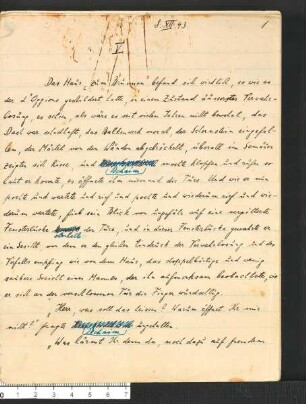 8. VII. 43
1
V.
Das Haus "zum Brunnen" befand sich wirklich, so wie es
der d'Oggione geschildert hatte, in einem Zustand äusserster Verwahr-
losung, es schien, als wäre es seit vielen Jahren nicht bewohnt, das
Dach war schadhaft, das Balkenwerk morsch, der Schornstein eingefal-
len, der Mörtel von den Wänden abgebröckelt, überall im Gemäuer
zeigten sich Risse, und
Behaim
mochte klopfen und rufen so
laut er konnte, es öffnete ihm niemand die Türe. Und wie er nun
pochte und wartete und rief und pochte und wiederum rief und wie-
derum wartete, fiel sein Blick von ungefähr auf eine vergitterte
Fensterlücke
oberhalb
der Türe, und in dieser Fensterlücke gewahrte er
ein Gesicht von dem er den gleichen Eindruck der Verwahrlosung und des
Verfalles empfing wie von dem Haus, das
und wenig
saubere Gesicht eines Mannes, der ihn aufmerksam beobachtete, wie
er sich an der verschlossenen Türe die Finger wundschlug.
"Herr, was soll das heissen? Warum öffnet Ihr mir
nicht?" fragte
Behaim
ungehalten.
"Was lärmt Ihr denn da, noch dazu auf fremdem